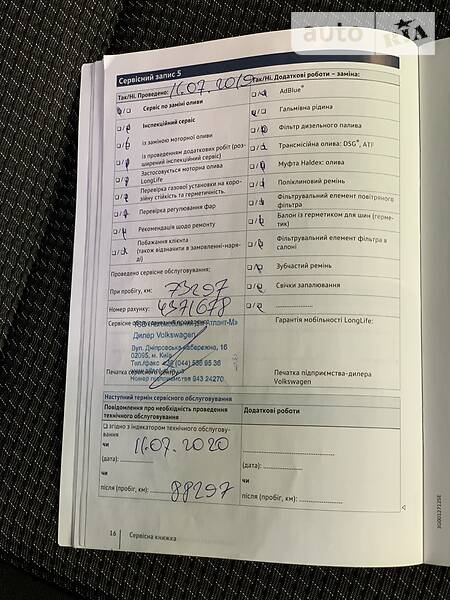 auto RIA
Сервісний запис 5
Так/Ні. Проведено: 16.07.2019
Сервіс по заміні оливи
Інспекційний сервіс
із заміною моторної оливи
із проведенням додаткових робіт (роз-
ширений інспекційний сервіс)
Застосовується моторна олива
LongLife
Перевірка газової установки на коро-
зійну стійкість та герметичність.
Перевірка регулювання фар
Рекомендація щодо ремонту
Побажання клієнта
(також відзначити в замовленні-наря-
ді)
Проведено сервісне обслуговування:
При пробігу, км: 73297
Номер рахунку: 4371678
Сервісне
Дилер Volkswagen
Вул. Дніпровська набережна, 16
02095, м. Київ
Тел./факс +38 (044) 536 95 36
Печатка сервісного центру:
Номер підприємства 943 24270
Так/Ні. Додаткові роботи – заміна:
AdBlue®
Гальмівна рідина
Фільтр дизельного палива
Трансмісійна олива: DSG®, ATF
Муфта Haldex: олива
Поліклиновий ремінь
Фільтрувальний елемент повітряного
фільтра
Балон із герметиком для шин (герме-
тик)
Фільтрувальний елемент фільтра в
салоні
Зубчастий ремінь
Свічки запалювання
Гарантія мобільності LongLife:
Печатка підприємства-дилера
Volkswagen
Наступний термін сервісного обслуговування
Повідомлення про необхідність проведення
технічного обслуговування
Згідно з індикатором технічного обслугову-
вання
чи 16.07.2020
(дата):
чи
після (пробіг, км): 88297
Додаткові роботи
(дата):
чи
після (пробіг, км):
16 Сервісна книжка
3G0012712SE